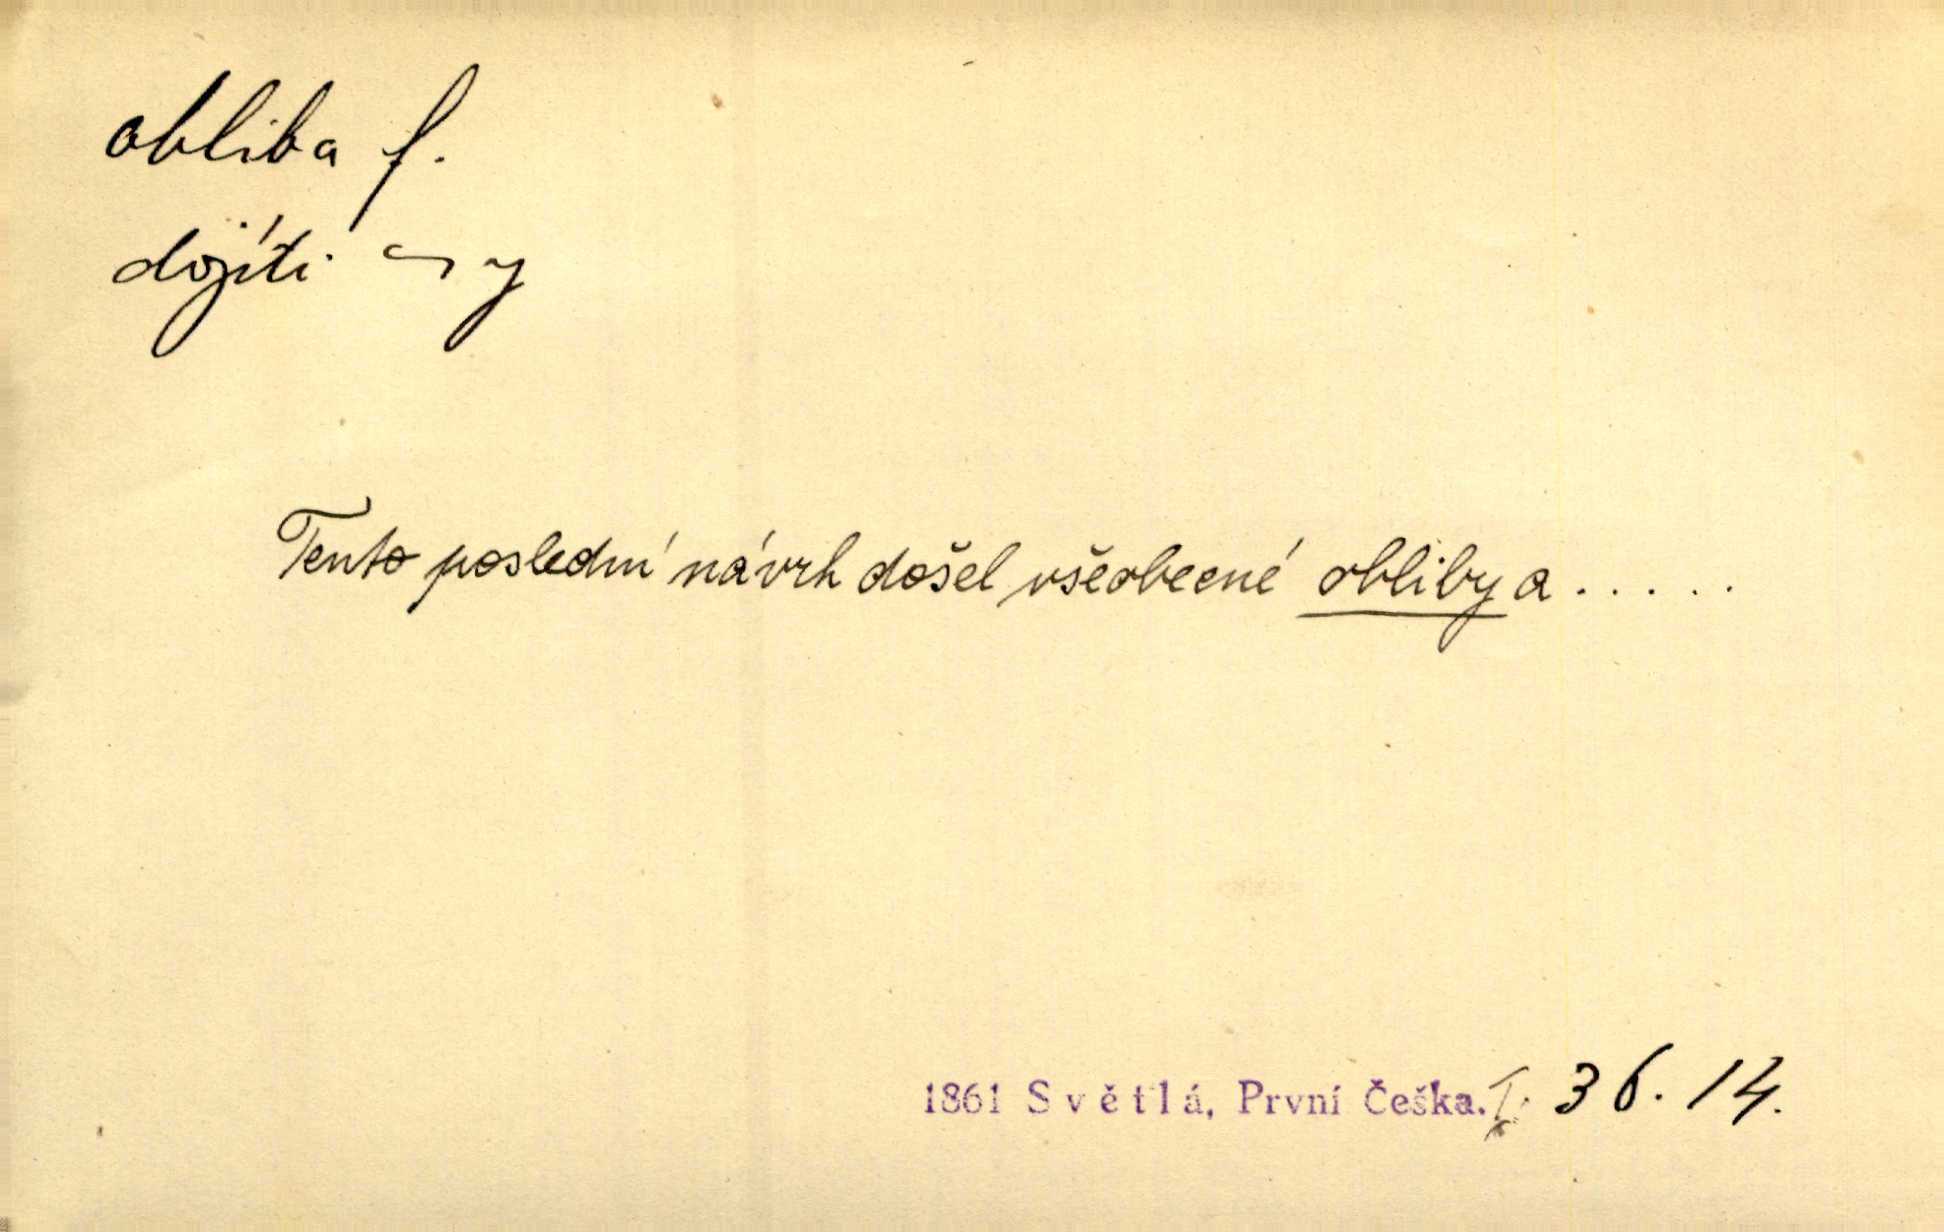 obliba f.
dojíti ~y
Tento poslední návrh došel všeobecné obliby a .....
1861 Světlá, První Češka. I. 36. 14.